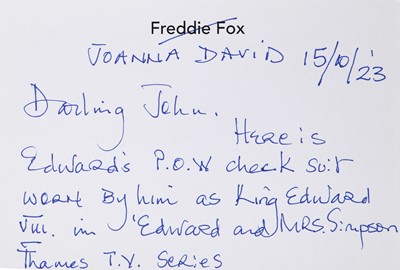 Freddie Fox
JOANNA DAVID 15/10/'23
Darling John.
Here is
Edward's P.O.W check suit
worn By him as King Edward
VIII. in 'Edward and MRS. Simpson
Thames T.V. Series